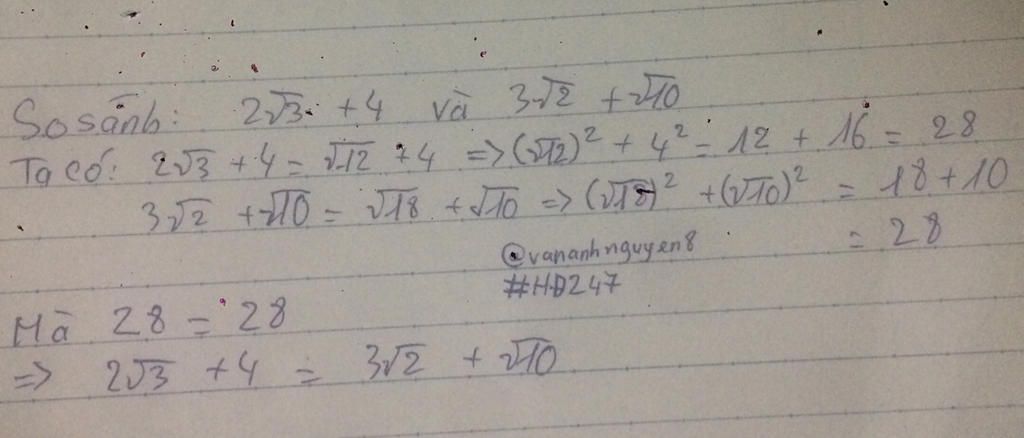 So sánh: 2√3 + 4 và 3√2 + √10
Ta có: 2√3 + 4 = √12 + 4 => (√12)² + 4² = 12 + 16 = 28
3√2 + √10 = √18 + √10 => (√18)² + (√10)² = 18 + 10
= 28
@vananhnguyen8
#HĐ247
Mà 28 = 28
=> 2√3 + 4 = 3√2 + √10